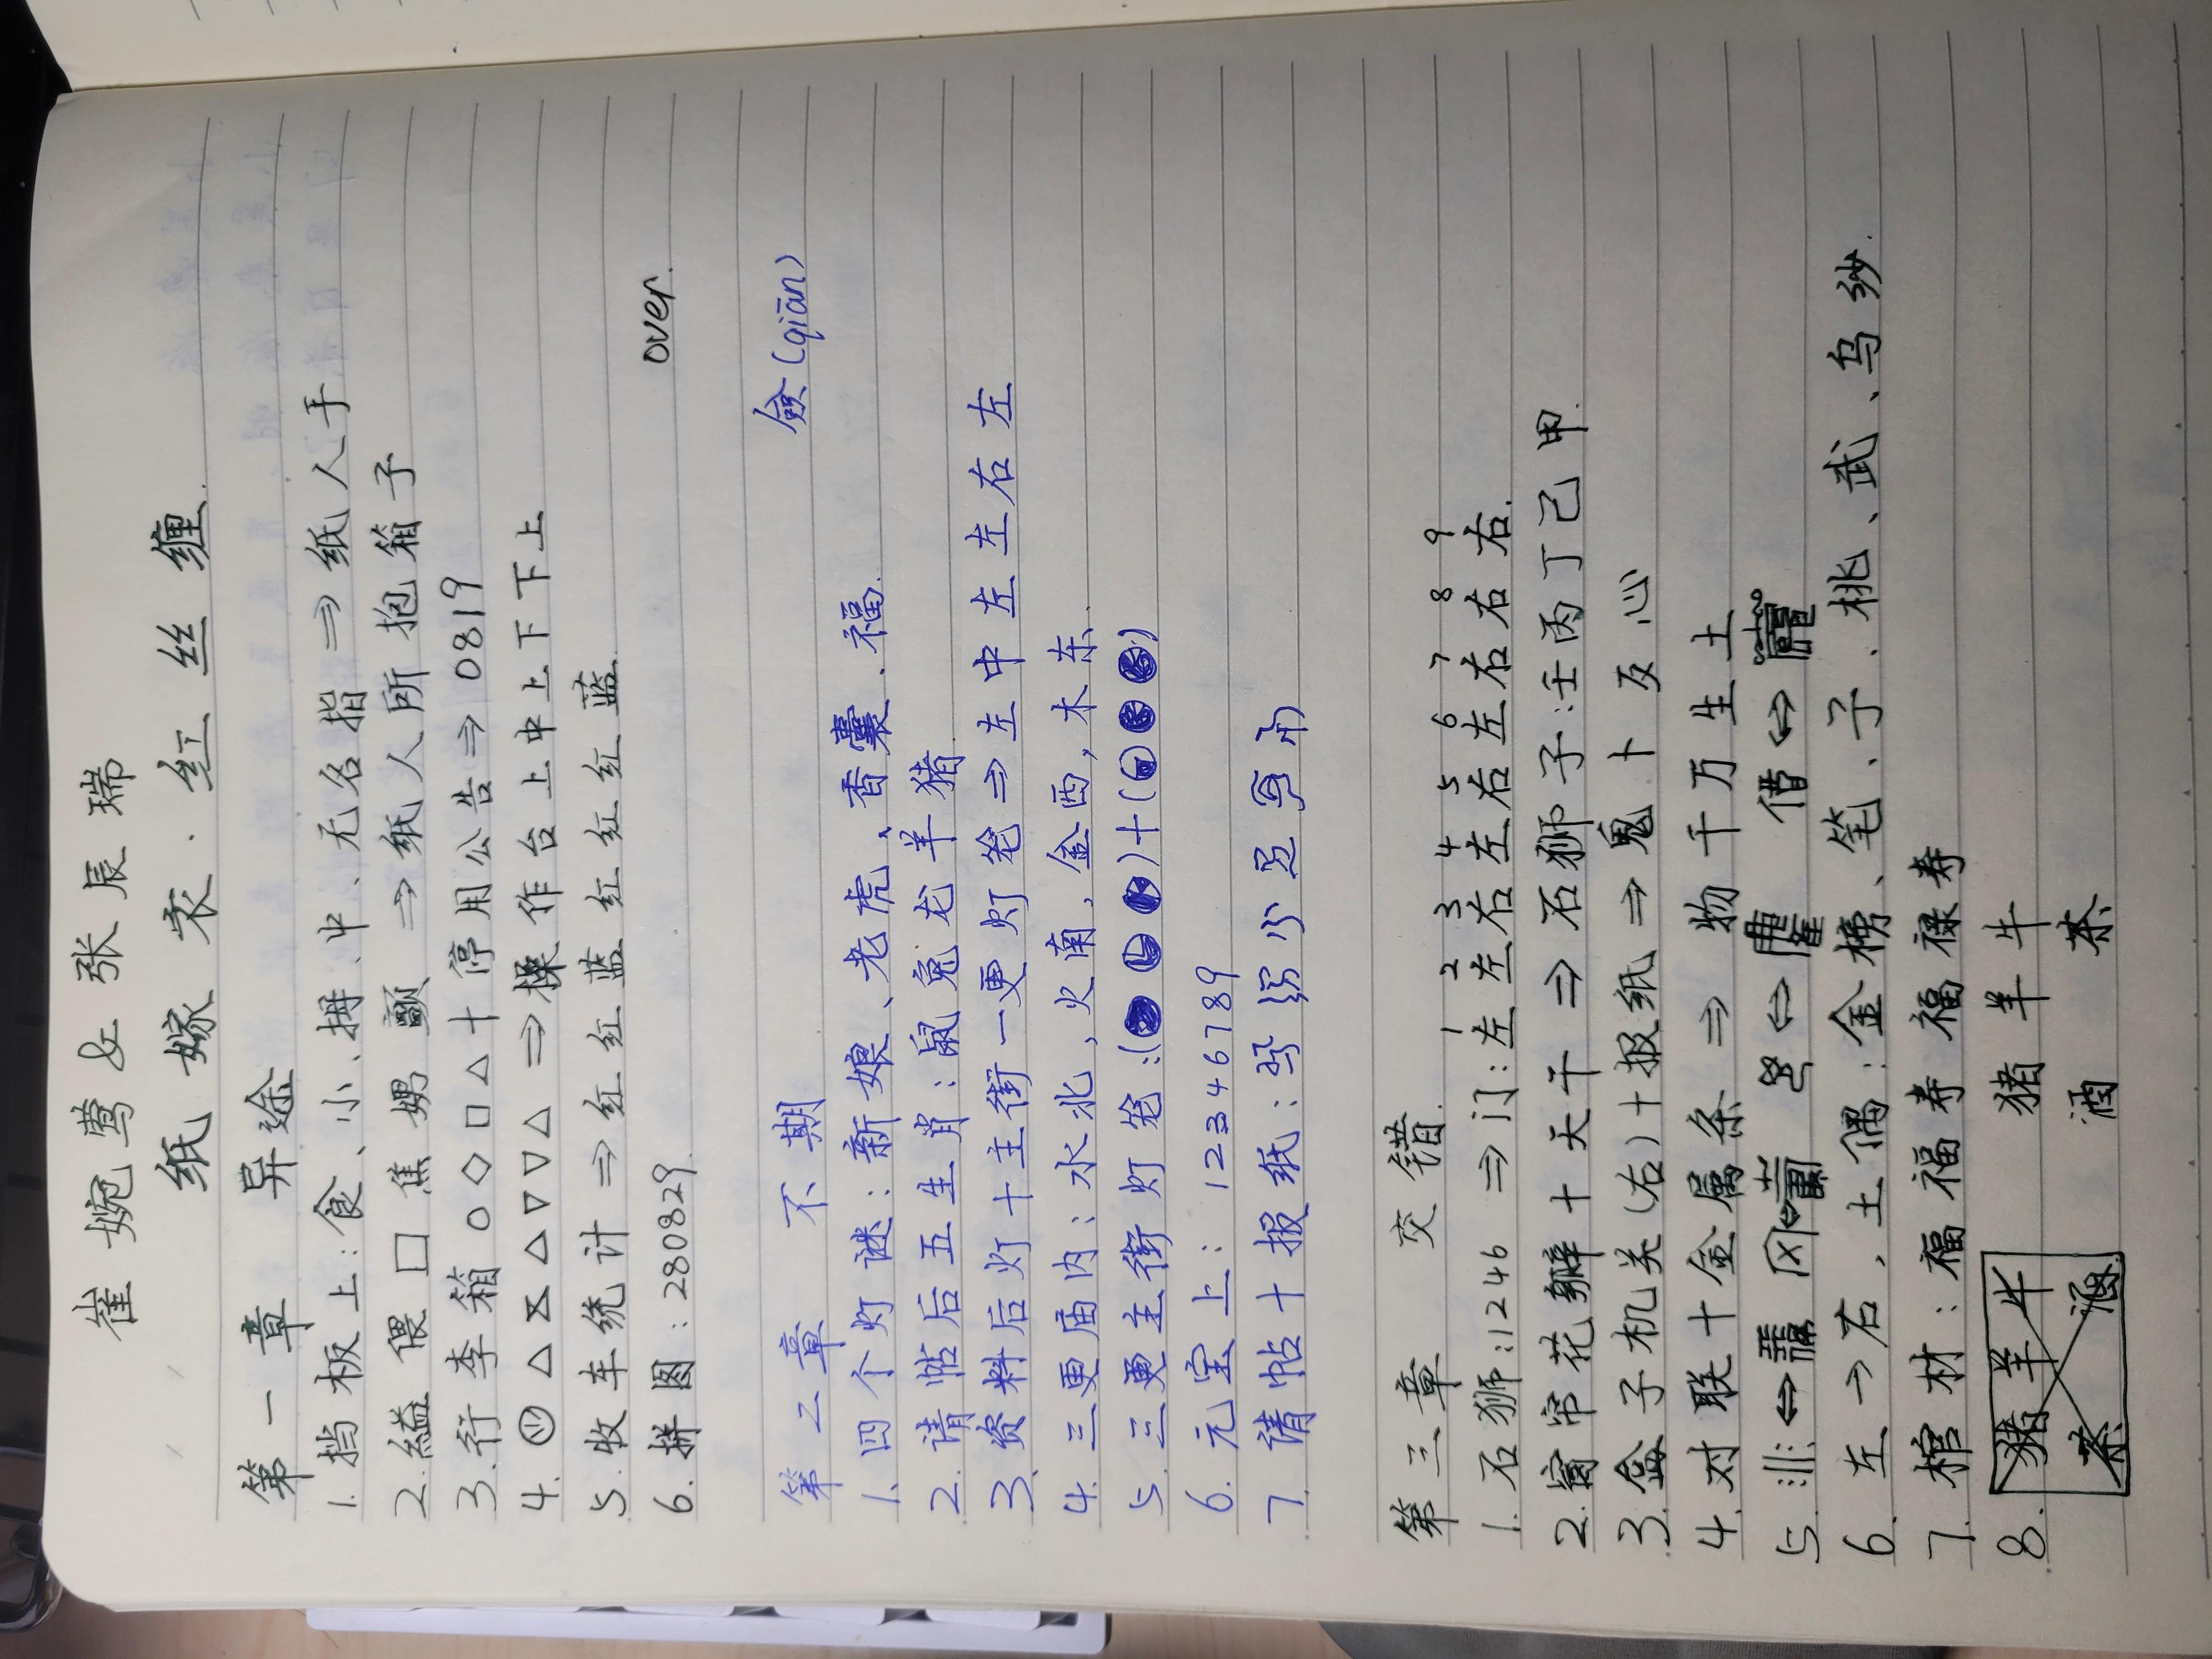 崔婉莺&张辰瑞
纸嫁衣、红丝缠.
第一章 异途
1.挡板上:食、小、拇、中、无名指 ⇒ 纸人手
2.縊偎囗焦娚顫 ⇒ 纸人所抱箱子
3.行李箱○◇□△+停用公告⇒0819
4. △⧖△▽▽△ ⇒操作台上中上下下上
5.收车统计 ⇒ 红红蓝红红红蓝
6.拼图:280829. over.
第二章 不期 僉(qiān)
1.四个灯谜:新娘、老虎、香囊、福.
2.请帖后五生肖:鼠兔龙羊猪
3.资料后灯+主街一更灯笼⇒左中左左右左
4.三更庙内:水北,火南,金西,木东.
5.三更主街灯笼:
6.元宝上:12346789
7.请帖+报纸:
第三章 交错.
1 2 3 4 5 6 7 8 9
1.石狮:1246 ⇒门:左左右左右左右右右.
2.窗帘花瓣+天干 ⇒ 石狮子:壬丙丁己甲.
3.盒子机关(右)+报纸⇒鬼卜反心
4.对联+金属条 ⇒ 物千万生土
5. 借⇔
6.左→右,土偶:金榜、笔、子、桃、武、乌纱.
7.棺材:福福寿福禄寿
8. 猪羊牛 猪羊牛
茶酒 酒 茶